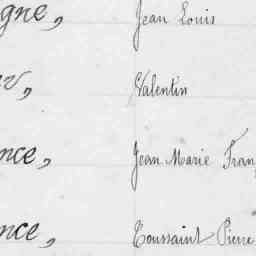 gne, Jean Louis
Valentin
nce, Jean Marie Fran
nce, Toussaint Pierre